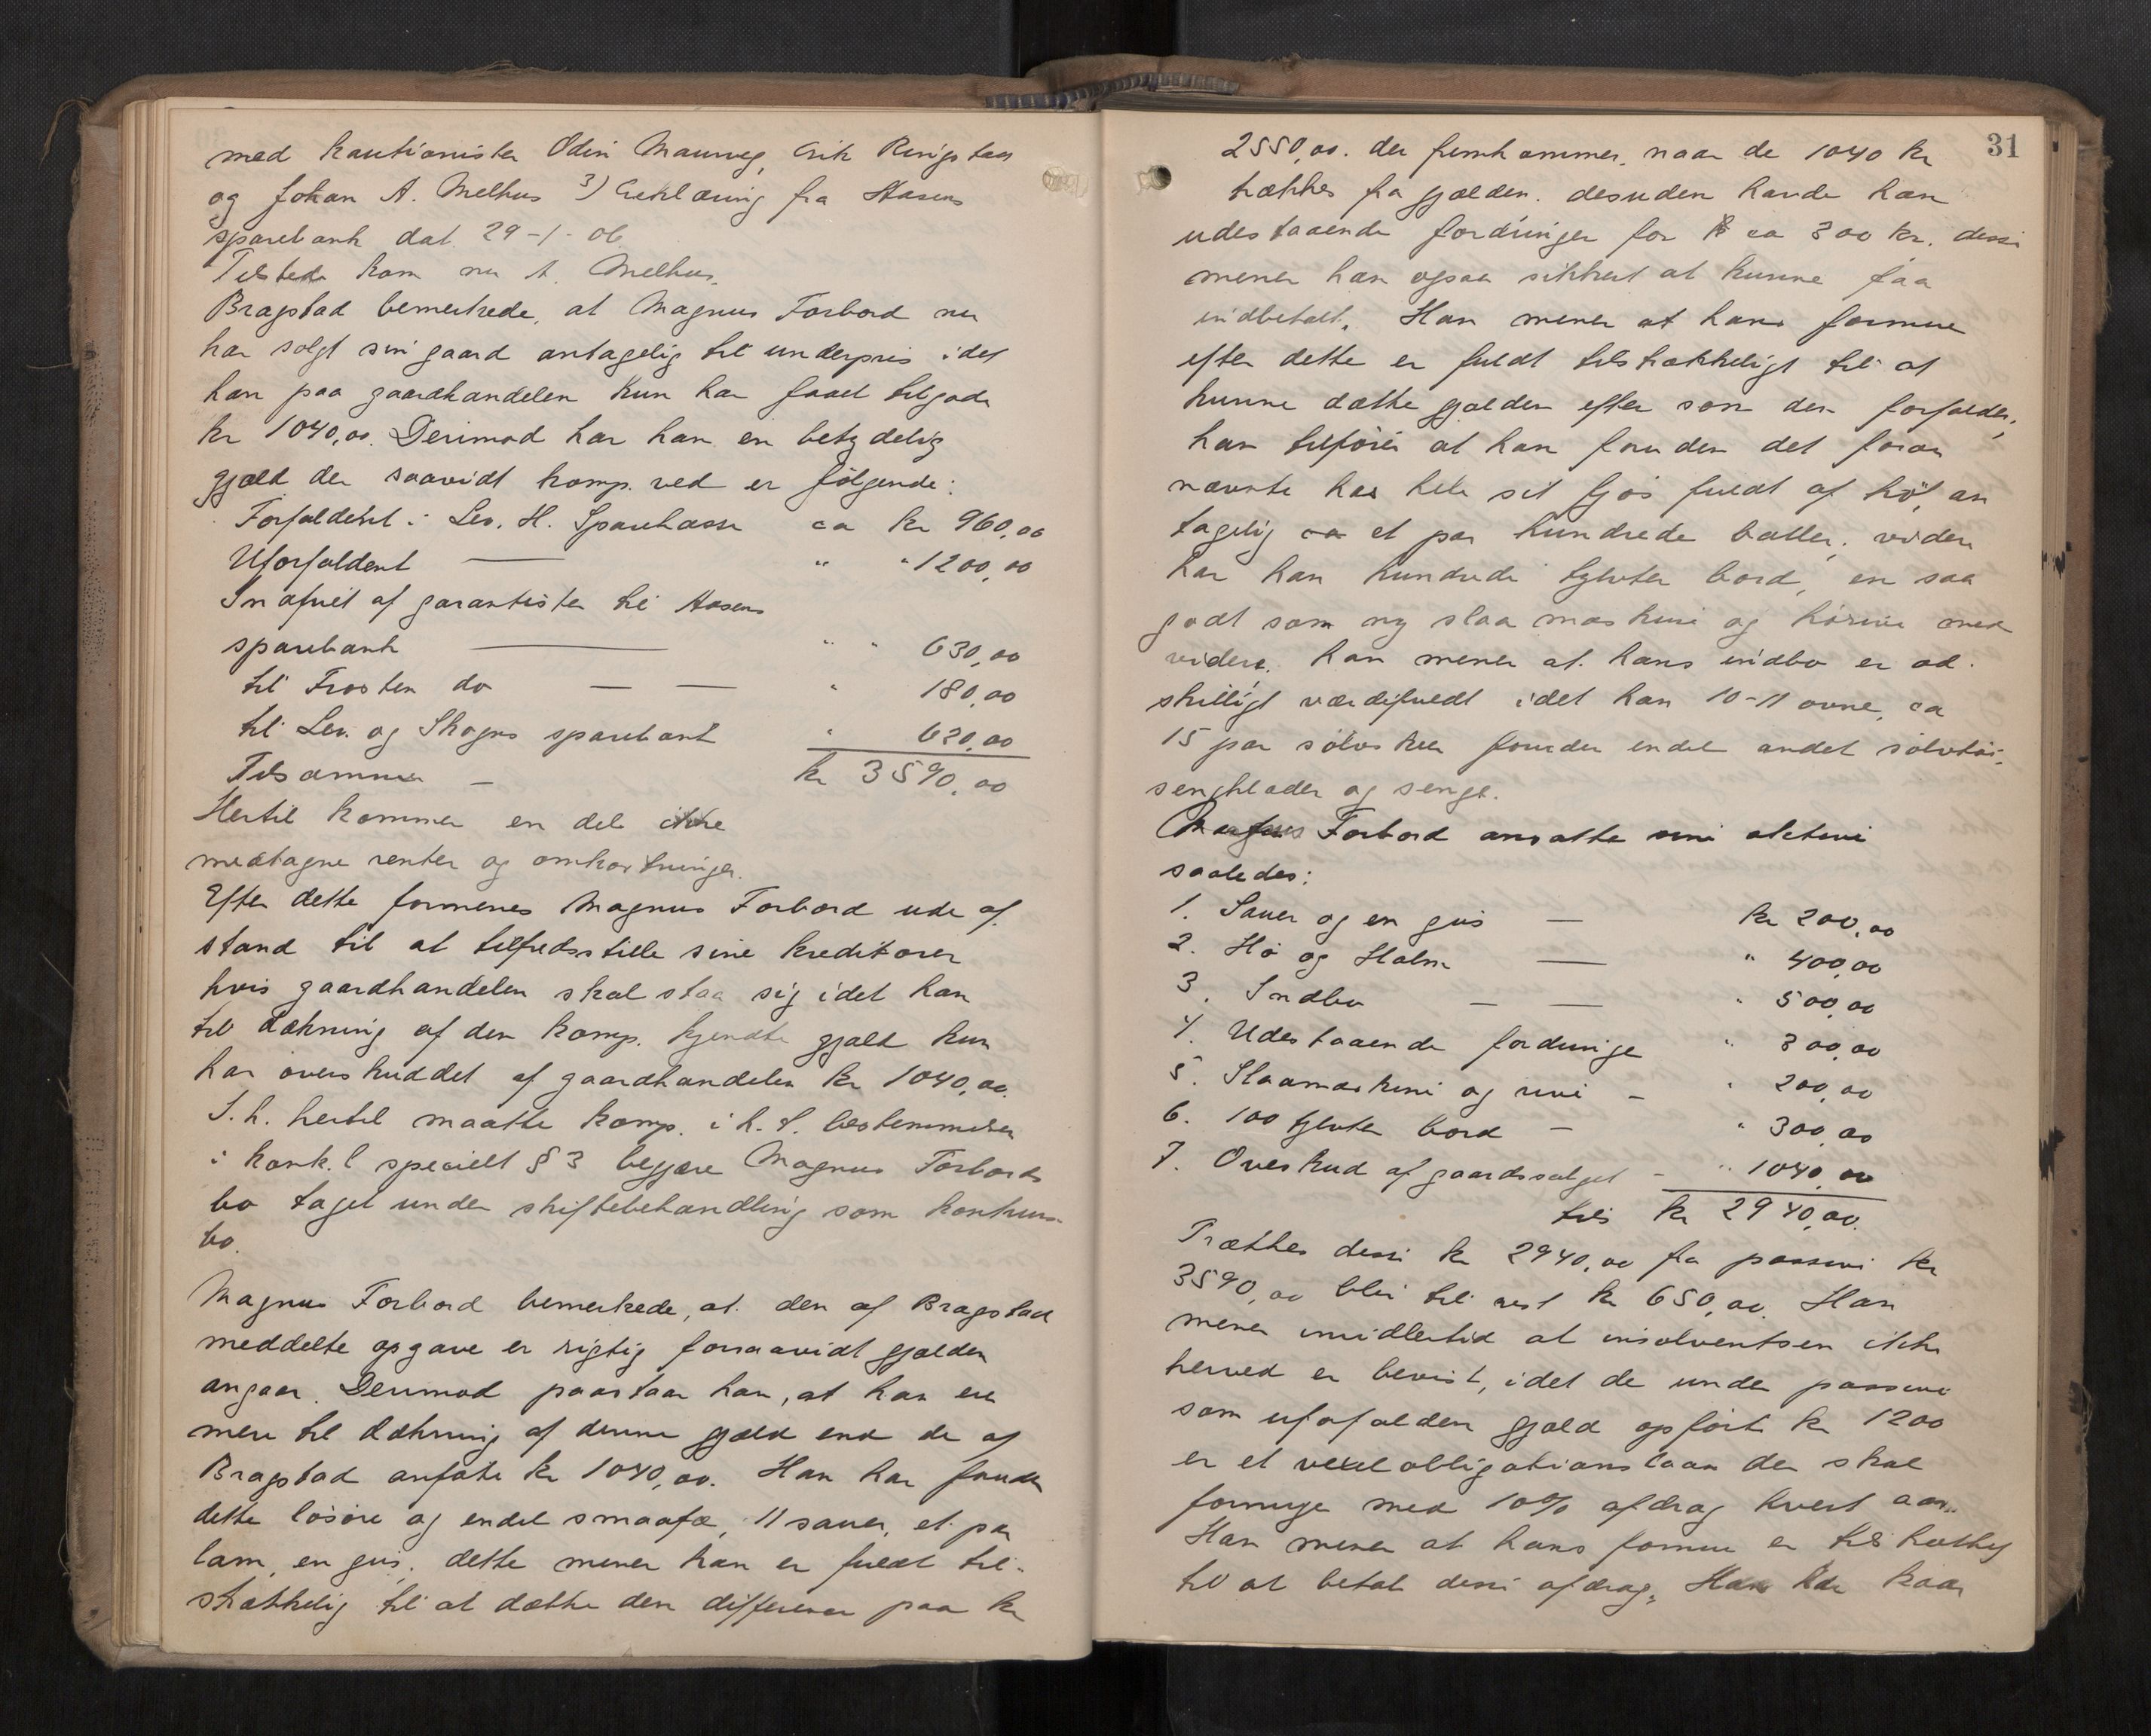 med kautionister Odin Maurveg, Erik Ringstad
og Johan A. Melhus 3) Erklæring fra Aasens
sparebank dat. 29-1-06
Tilstede kom nu A. Melhus.
Bragstad bemerkede, at Magnus Forbord nu
har solgt sin gaard antagelig til underpris idet
han paa gaardhandelen kun har faaet tilgode
kr 1040,00. Derimod har han en betydelig
gjæld der saavidt komp. ved er følgende:
Forfaldent i Lev. H. Sparekasse ca kr 960,00
Uforfaldent — " " 1200,00
Inafriet af garantister til Aasens
sparebank — " " 630,00
til Frosten do — — " 180,00
til Lev. og Skogns sparebank " 620,00
Tilsammen — kr 3590,00
Hertil kommer en del ikke
medtagne renter og omkostninger.
Efter dette formenes Magnus Forbord ude af
stand til at tilfredsstille sine kreditorer
hvis gaardhandelen skal staa sig idet han
til dækning af den komp. kjendte gjæld kun
har overskuddet af gaardhandelen kr 1040,00.
I. h. hertil maatte komp. i h. t. bestemmelsen
i konk. l specielt § 3 begjære Magnus Forbords
bo taget under skiftebehandling som konkurs-
bo.
Magnus Forbord bemerkede, at den af Bragstad
meddelte opgave er rigtig forsaavidt gjælden
angaar. Derimod paastaar han, at han eier
mere til dækning af denne gjæld end de af
Bragstad anførte kr 1040,00. Han har foruden
dette løsøre og endel smaafæ, 11 sauer, et par
lam, en gris, dette mener han er fuldt til-
strækkelig til at dække den differense paa kr
31
2550,00. der fremkommer, naar de 1040 kr
trækkes fra gjælden. desuden havde han
udestaaende fordringer for ca 300 kr. disse
mener han ogsaa sikkert at kunne faa
indbetalt. Han mener at hans formue
efter dette er fuldt tilstrækkeligt til at
kunne dække gjælden efter som den forfalder,
han tilføier at han foruden det foran
nævnte har hele sit fjøs fuldt af hø, an
tagelig ca et par hundrede batter, videre
har han hundrede tylvter bord, en saa
godt som ny slaamaskine og hørive med
videre. han mener at hans indbo er ad-
skilligt værdifuldt idet han 10-11 ovne, ca
15 par sølvskeer foruden endel andet sølvtøi,
sengklæder og senge.
Magnus Forbord ansatte sine aktiver
saaledes:
1. Sauer og en gris — kr 200,00
2. Hø og Halm — " 400,00
3. Indbo — — " 500,00
4. Udestaaende fordringer " 300,00
5. Slaamaskine og rive — " 200,00
6. 100 tylvter bord — " 300,00
7. Overskud af gaardssalget — " 1040,00
tils kr 2940,00.
Trækkes disse kr 2940,00 fra passiva kr
3590,00 blir til rest kr 650,00. Han
mener imidlertid at insolventsen ikke
herved er bevist, idet de under passiva
som uforfalden gjæld opført kr 1200
er et vexelobligationslaan der skal
fornyes med 10% afdrag hvert aar.
Han mener at hans formue er tilstrækkelig
til at betale disse afdrag. Han har